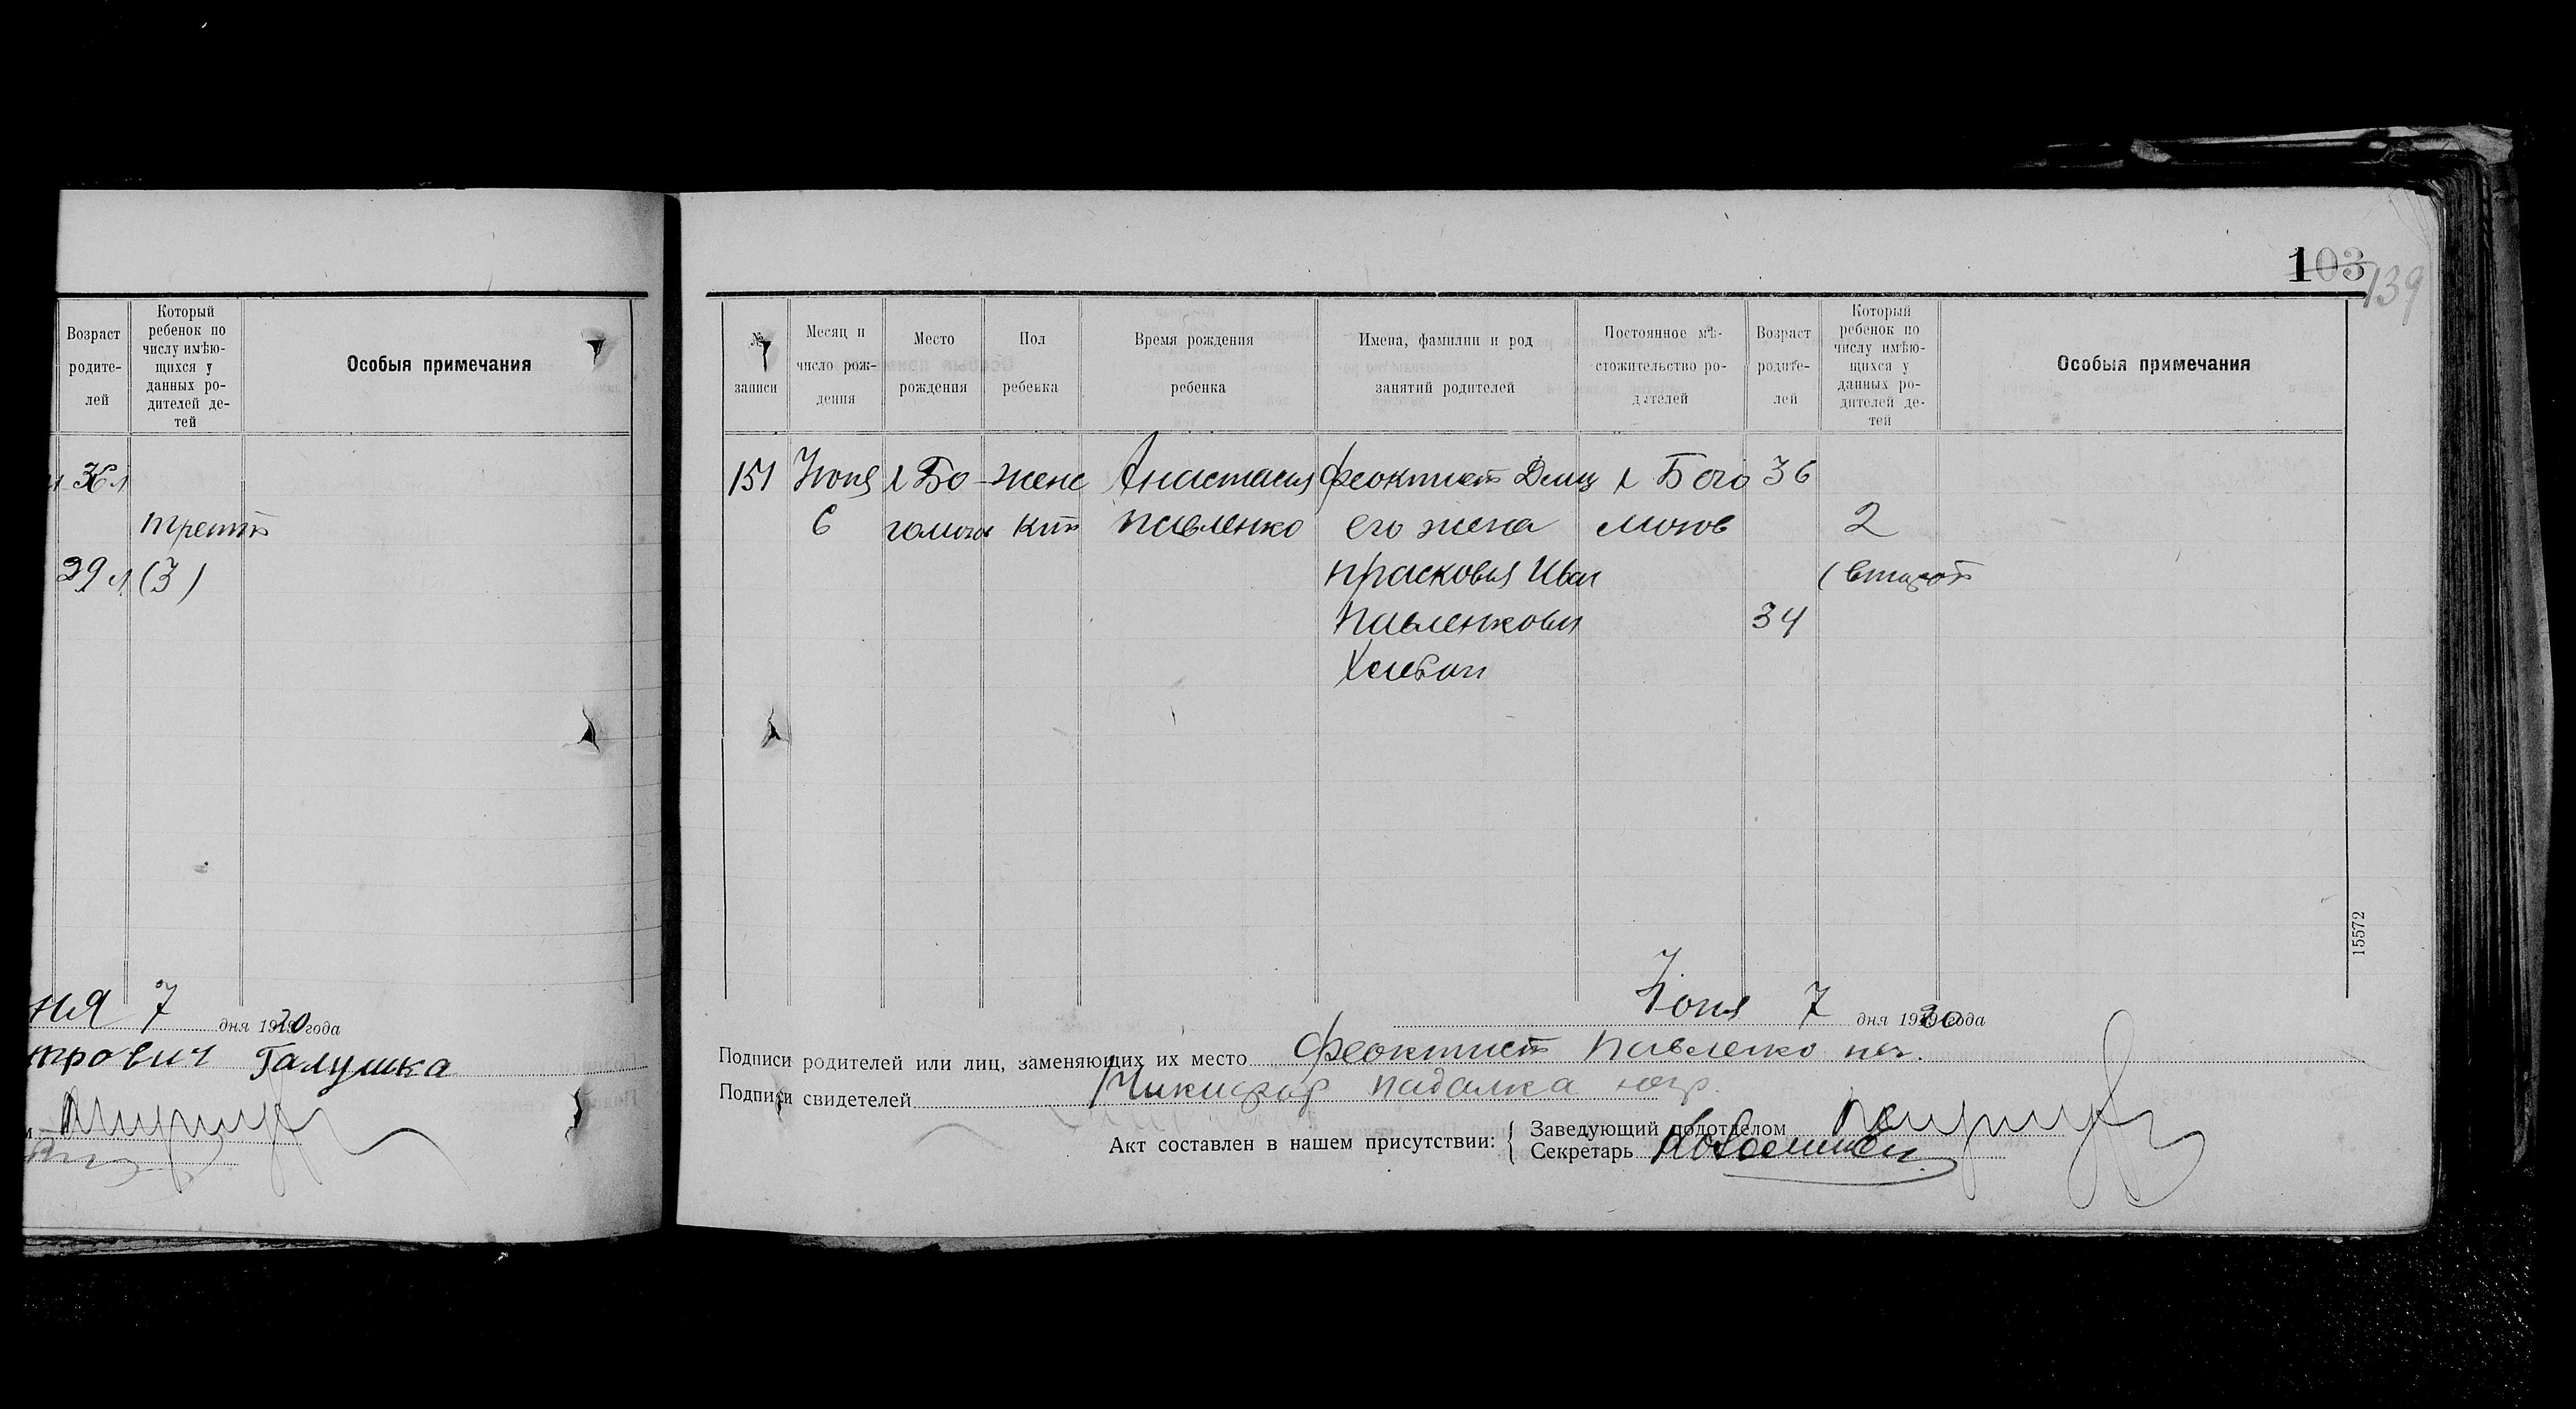 Возраст
родите-
лей
Который
ребенок по
числу имѣю-
щихся у
данных ро-
дителей де-
тей
Особыя примечания
третъ
29 л (3)
ня 7 дня 1920 года
трович Галушка
103
139
№
записи
Месяц и
число рож-
дения
Место
рождения
Пол
ребенка
Время рождения
ребенка
Имена, фамилии и род
занятий родителей
Постоянное мѣ-
стожительство ро-
дителей
Возраст
родите-
лей
Который
ребенок по
числу имѣю-
щихся у
данных ро-
дителей де-
тей
Особыя примечания
151 Июня х Бо- женс Анастасия Феоктист Дмит х Бого 36
6 гомолов Павленко его жена молов 2
Прасковья Иван (второй
Павленкова 34
Хлебоп
15572
Июня 7 дня 1920 года
Подписи родителей или лиц, заменяющих их место Феоктист Павленко
Подписи свидетелей Никифор Падалка
Акт составлен в нашем присутствии:
Заведующий подотделом
Секретарь